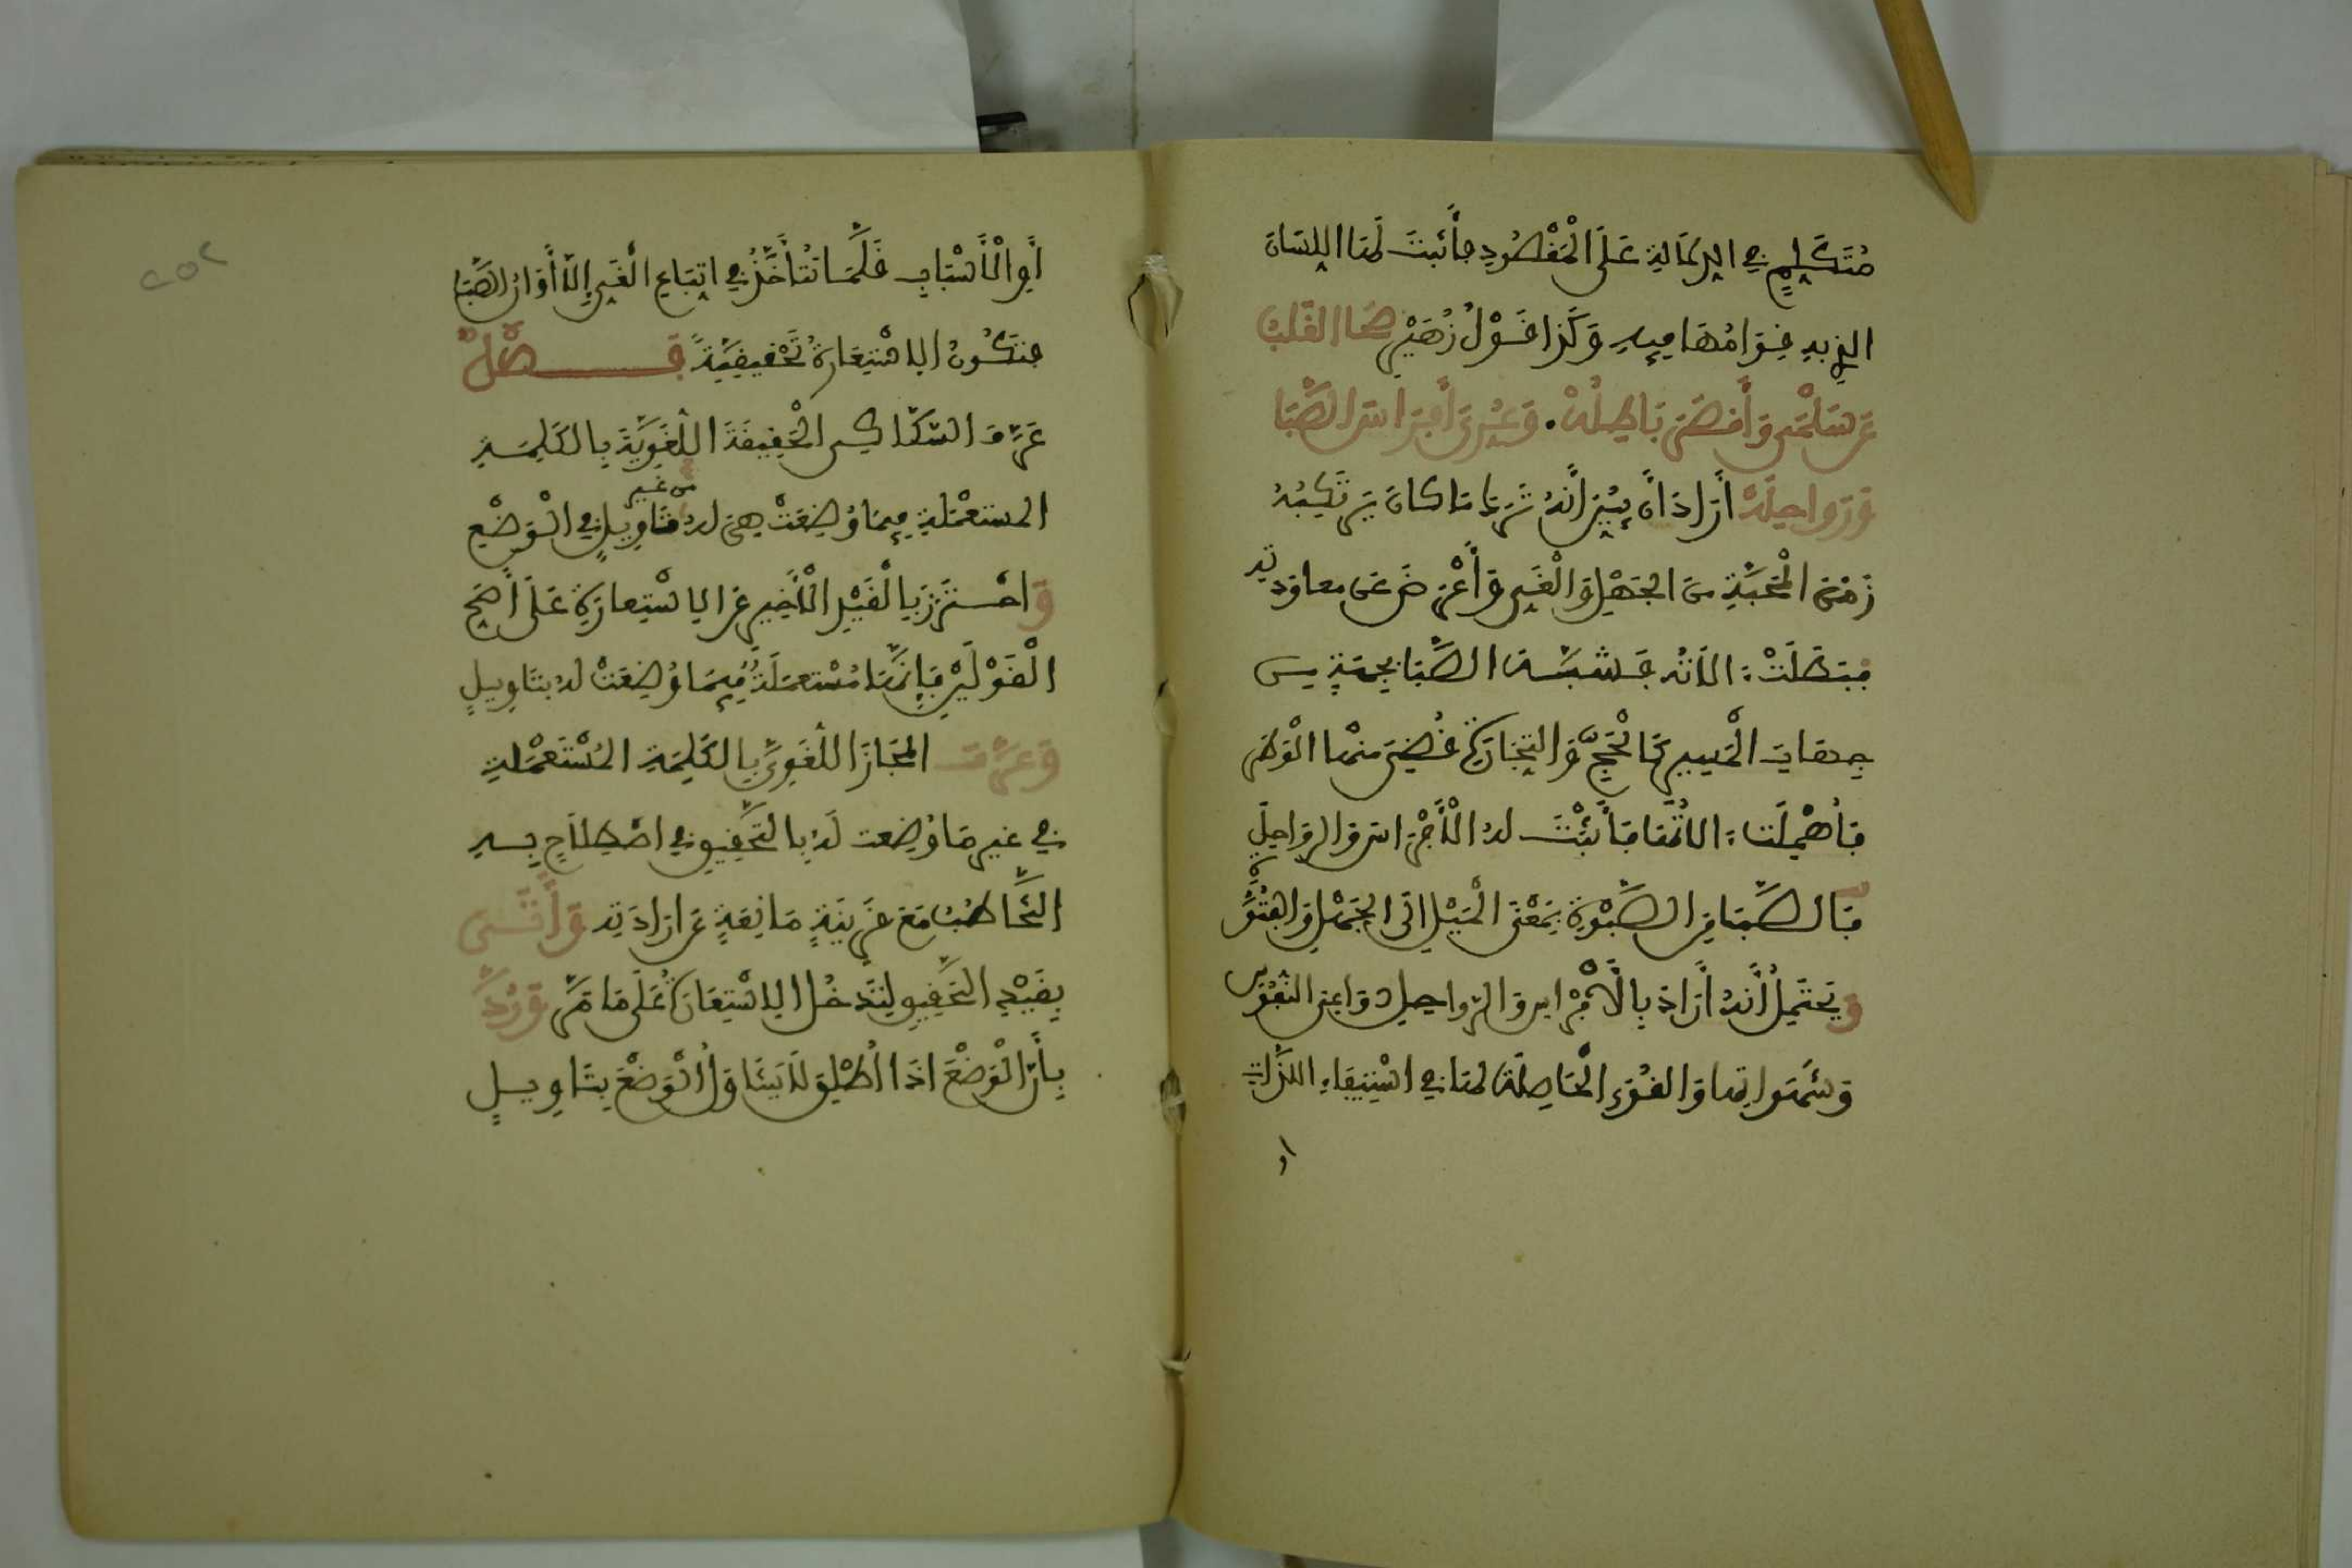 مُتَكَلِّمٍ فِي الدِّلَالَةِ عَلَى الْمَقْصُودِ فأَثبتَ لَهَا اللِّسَانَ
الذي به قِوَامُهَا فِيهِ وَكَذَا قَوْلُ زُهَيْرٍ صَحَا القَلْبُ
عَن سَلْمَى وَأَقْصَرَ بَاطِلُهْ وَعُرِّيَ أَفْرَاسُ الصِّبَا
وَرَوَاحِلُهْ أَرَادَ أَن يُبَيِّنَ أَنَّهُ تَرَكَ مَا كَانَ يَرْتَكِبُهُ
زَمَنَ الْمَحَبَّةِ مِنَ الجَهْلِ وَالْغَيِّ وَأَعْرَضَ عَن معاودته
فبَطَلَتْ الَاتُه فَشبّه الصِّبَا بجهةٍ من
جهات الْمَسِيرِ كَالْحَجِّ وَالتِّجَارَةِ قُضِيَ منها الْوَطَرُ
فَأُهْمِلَت الاتُهَا فَأَثْبَتَ له الْأَفْرَاسَ والرَّوَاحِلَ
فَالصِّبَا مِنَ الصَّبْوَةِ بِمَعْنَى الْمَيْلِ الَى الجَهْلِ وَالفُتُوَّةِ
وَيَحْتَمِلُ أَنَّهُ أَرَادَ بِالْأَفْرَاسِ والرَّوَاحِلِ دَوَاعِيَ النُّفُوسِ
وَشَهَوَاتِهَا وَالْقُوَى الْحَاصِلَةَ لَهَا فِي اسْتِيفَاءِ اللَّذَّاتِ
أو
أَوِ الْأَسْبَابِ قَلَّمَا تَتَأَخَّذُ فِي اتِّبَاعِ الْغَيِّ إِلَّا أَوَانَ الصِّبَا
فتَكُونُ الِاسْتِعَارَةُ تَحْقِيقِيَّةً فَصْلٌ
عَرَّفَ السَّكَّاكِي الْحَقِيقَةَ اللُّغَوِيَّةَ بِالكَلِمَةِ
المستعمَلةِ فِيمَا وُضِعَتْ هِيَ له من غير تَاوِيلٍ فِي الْوَضْعِ
وَاحْتَرَزَ بِالْقَيْدِ الْأَخِيرِ عَنِ الِاسْتِعَارَةِ عَلَى أَصَحِّ
الْقَوْلَيْنِ فَإِنَّهَا مُسْتَعمَلَةٌ فِيمَا وُضِعَتْ له بتَاويلٍ
وَعَرَّفَ الْمَجَازَ اللُّغَوِيَّ بِالكَلِمَةِ الْمُسْتَعْمَلَةِ
فِي غير مَا وُضِعت لَهُ بِالتَّحْقِيقِ فِي اصْطِلَاحٍ بِهِ
التَّخَاطُبُ مَعَ قَرِينَةٍ مَانِعَةٍ عَن ارَادَتِهِ وَأَتَى
بِقَيْدِ التَّحْقِيقِ لِتَدخُلَ الِاسْتِعَارَةُ عَلَى مَا مَرَّ وَرُدَّ
بِأَنَّ الْوَضْعَ اذَا أُطْلِقَ لَا يَتَنَاوَلُ الْوَضْعَ بِتَاوِيلٍ